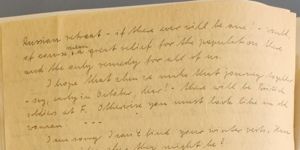 Russian retreat - if there ever will be one! - would
of course mean a great relief for the population here
and the only remedy for all of us.
I hope that then we make that journey together
- say, early in October, dear! - there will be
at F. Otherwise you must look like an old
woman - - -
I am sorry I can't find your verbs. Here
they might be!